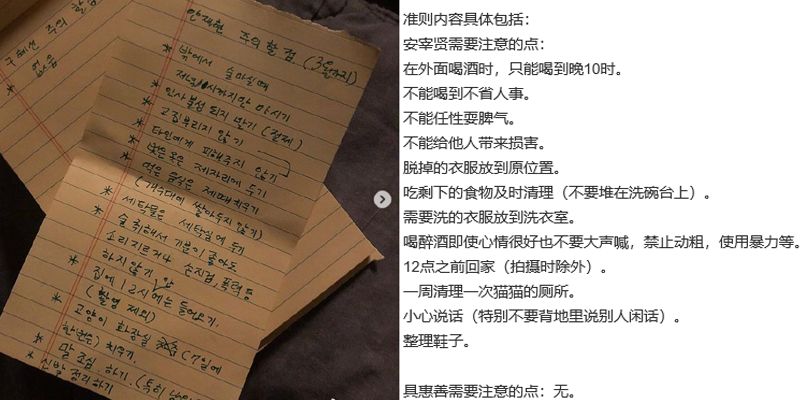 구혜선 주의 할 점
* 없음
안재현 주의 할 점
* 밖에서 술 마실때
저녁 10시까지만 마시기
* 인사불성 되지 말기 (절제)
* 고집부리지 않기
* 타인에게 피해주지 않기
* 벗은 옷은 제자리에 두기
* 먹은 음식은 제때 치우기
(개수대에 쌓아두지 않기)
* 세탁물은 세탁실에 두기
* 술 취해서 기분이 좋아도
소리지르거나 손지검, 폭력 등
하지 않기
* 집에 12시 안에는 들어오기.
(촬영 제외)
* 고양이 화장실 (7일에
한번은) 치우기.
* 말 조심 하기. (특히
* 신발 정리하기
准则内容具体包括：
安宰贤需要注意的点：
在外面喝酒时，只能喝到晚10时。
不能喝到不省人事。
不能任性耍脾气。
不能给他人带来损害。
脱掉的衣服放到原位置。
吃剩下的食物及时清理（不要堆在洗碗台上）。
需要洗的衣服放到洗衣室。
喝醉酒即使心情很好也不要大声喊，禁止动粗，使用暴力等。
12点之前回家（拍摄时除外）。
一周清理一次猫猫的厕所。
小心说话（特别不要背地里说别人闲话）。
整理鞋子。
具惠善需要注意的点：无。